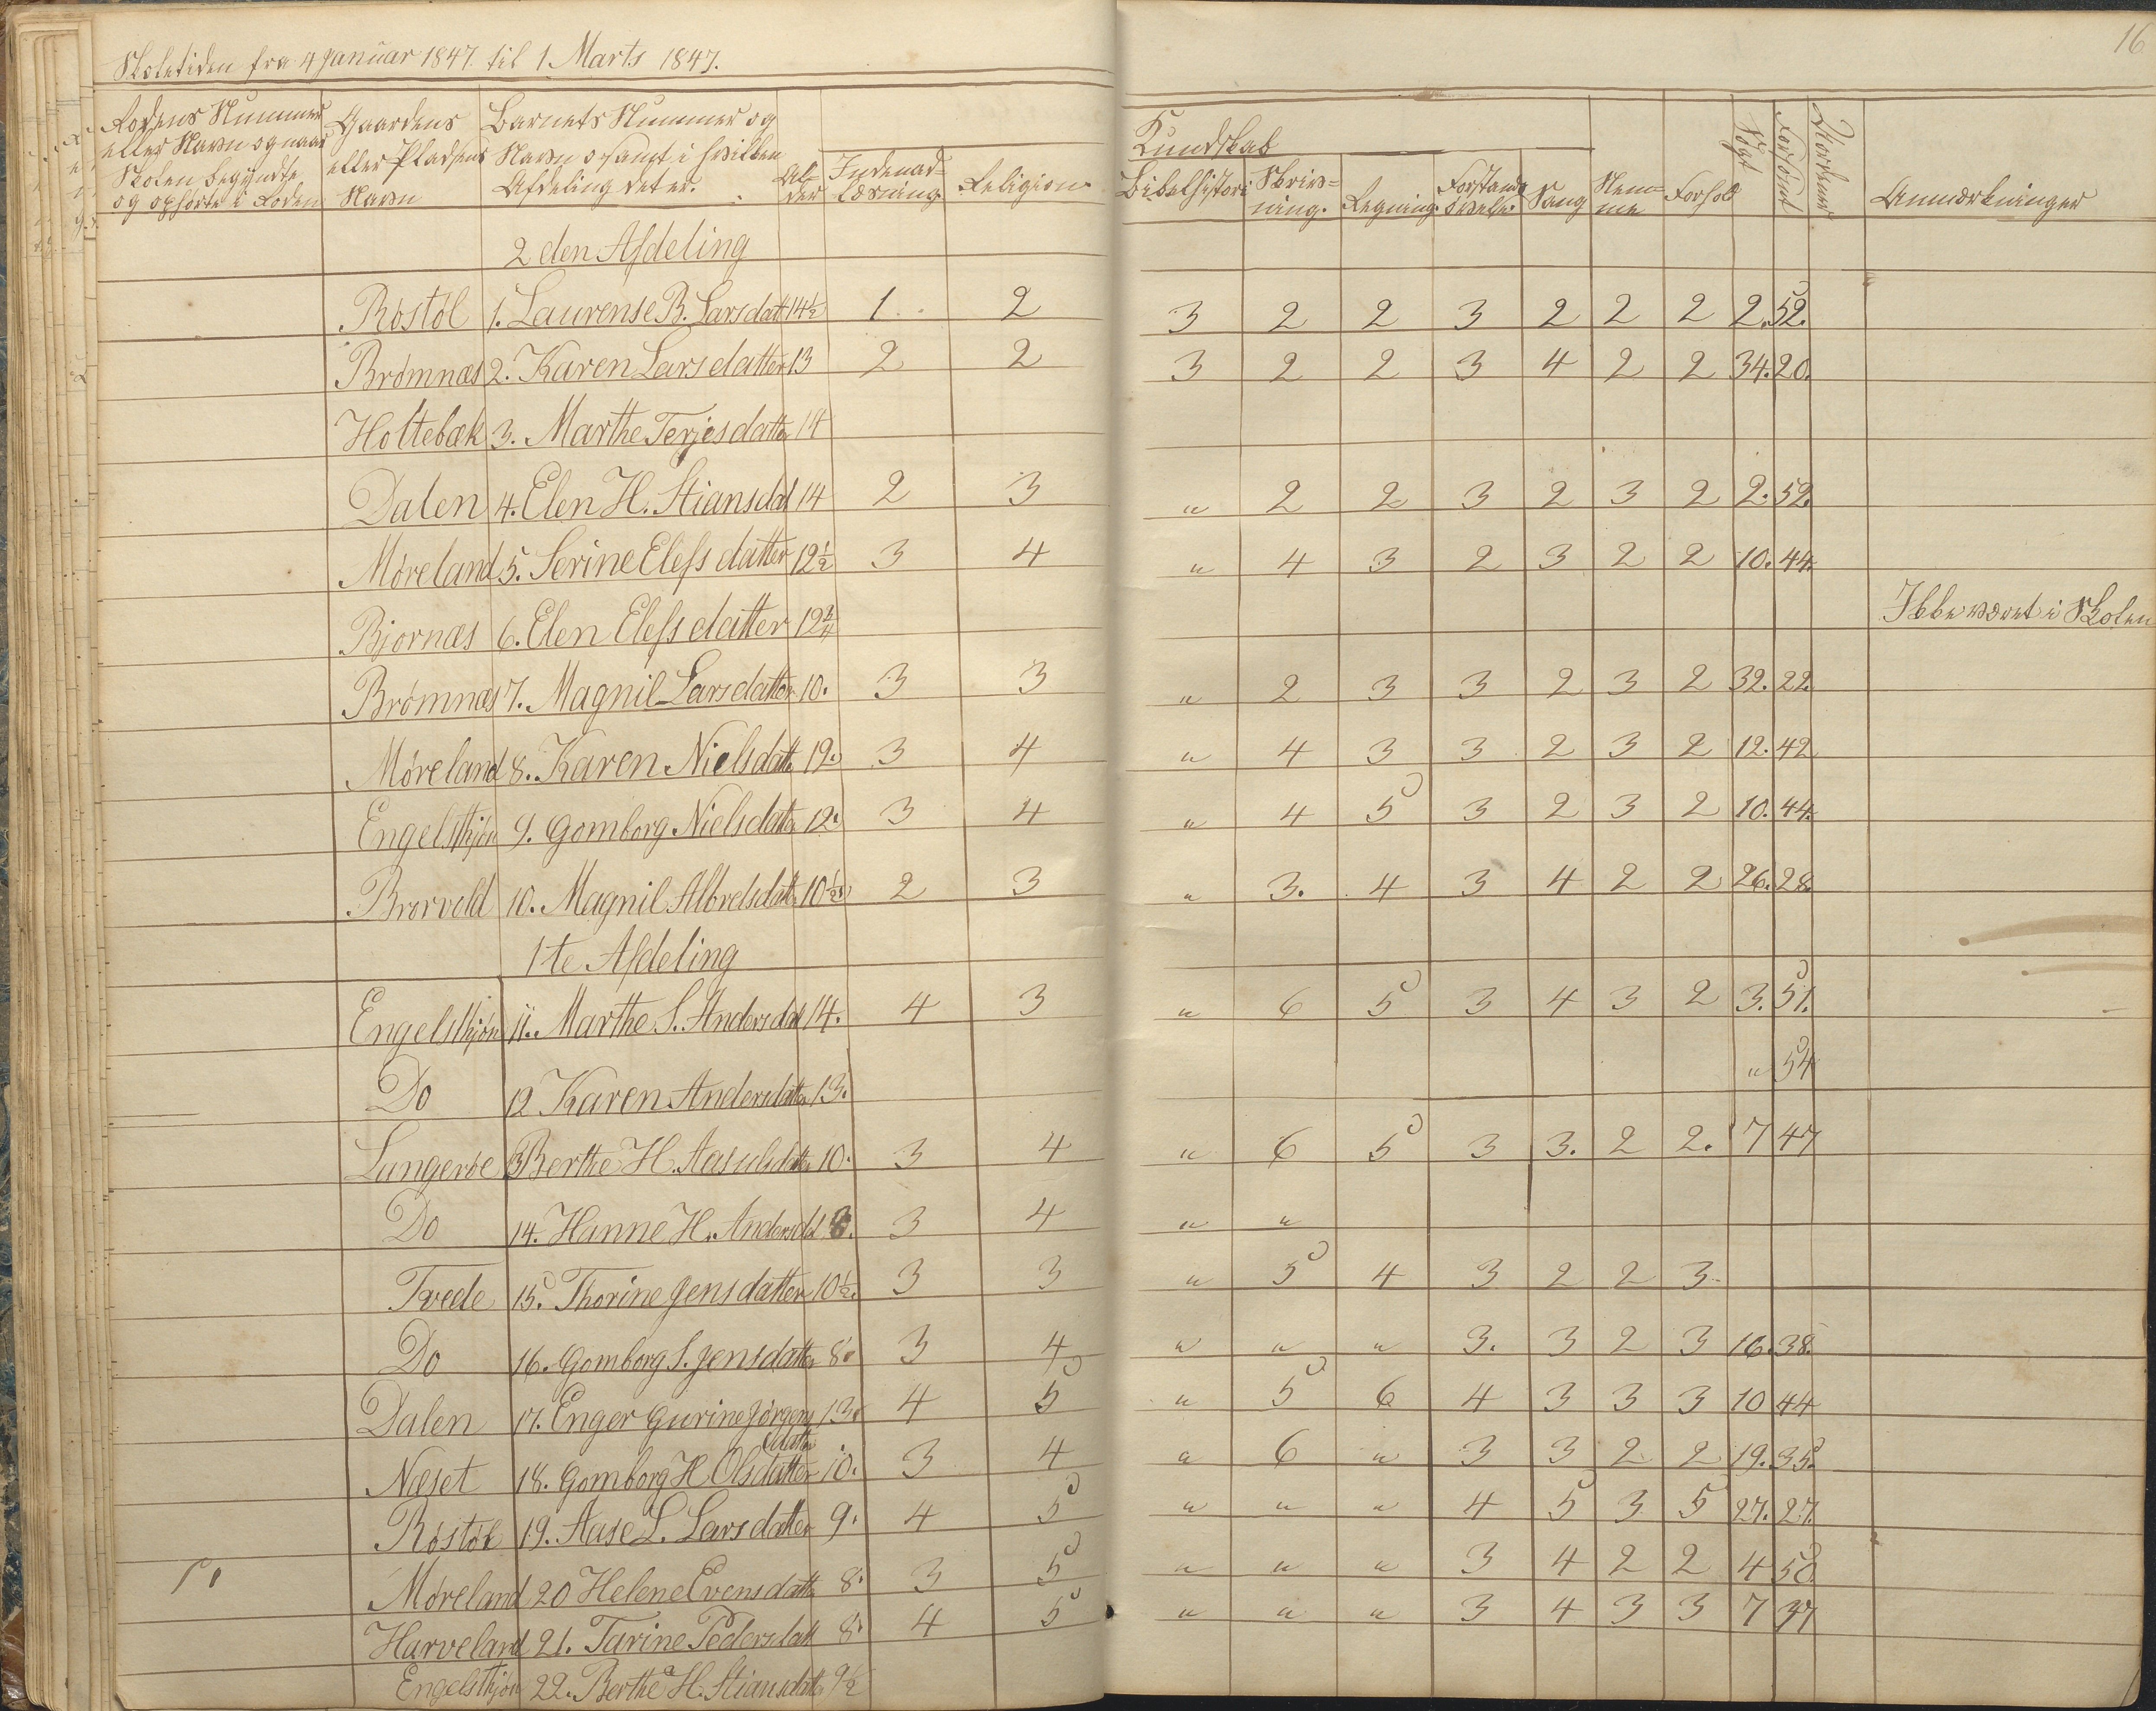 Skoletiden fra 4 Januar 1847. til 1 Marts 1847.
16
Rodens Nummer eller Navn og naar Skolen begyndte og ophørte i Roden
Gaardens eller Pladsens Navn
Barnets Nummer og Navn samt i hvilken Afdeling det er.
Al-der
Indenad-læsning
Religion
Kundskab
Bibelhistorie
Skriv-ning.
Regning
Forstands øvelse
Sang
Nem-me
Forhold
Søgt
Forsømt
Anmærkninger
2den Afdeling
Røstøl 1. Laurense B. Larsdat 14½ 1. 2 3 2 2 3 2 2 2 2. 52.
Brømnæs 2. Karen Larsdatter 13 2 2 3 2 2 3 4 2 2 34. 20.
Holtebæk 3. Marthe Terjesdatter 14
Dalen 4. Elen H. Stiansdat 14 2 3 " 2 2 3 2 3 2 2. 52.
Møreland 5. Serine Elefsdatter 12½ 3 4 " 4 3 2 3 2 2 10. 44.
Bjornæs 6. Elen Elefsdatter 12¾ Ikke været i Skolen
Brømnæs 7. Magnil Larsdatter 10. 3 3 " 2 3 3 2 3 2 32. 22.
Møreland 8. Karen Nielsdatt 12. 3 4 " 4 3 3 2 3 2 12. 42
Engelsthjön 9. Gomborg Nielsdatter 12. 3 4 " 4 5 3 2 3 2 10. 44.
Brorvold 10. Magnil Albretsdatt 10½ 2 3 " 3. 4 3 4 2 2 26. 28.
1te Afdeling
Engelsthjön 11. Marthe S. Andersdat 14. 4 3 " 6 5 3 4 3 2 3. 51.
Do 12 Karen Andersdatter 13. " 54
Lungerøe 13 Berthe H. Aasulsdatter 10. 3 4 " 6 5 3 3. 2 2. 7 47
Do 14. Hanne H. Andersdat 8. 3 4 " "
Tvede 15. Thorine Jensdatter 10½. 3 3 " 5 4 3 2 2 3
Do 16. Gomborg S. Jensdatter 8. 3 4 " " " 3. 3 2 3 16. 38.
Dalen 17. Enger Gurine Jørgens datter 13. 4 5 " 5 6 4 3 3 3 10 44
Næset 18. Gomborg H Olsdatter 10. 3 4 " 6 " 3 3 2 2 19. 35.
Røstøl 19. Aase L. Larsdatter 9. 4 5 " " " 4 5 3 5 27. 27.
Møreland 20 Helene Evensdatter 8. 3 5 " " " 3 4 2 2 4 50.
Harveland 21. Tarine Pedersdatt 8. 4 5 " " " 3 4 3 3 7 37
Engelsthjön 22. Berthe H. Stiansdatt 9½